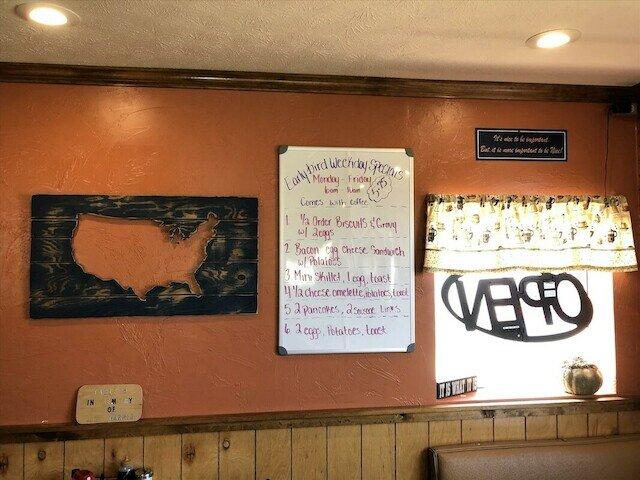 It's nice to be important
But, it is more important to be Nice!
Early bird Weekday Specials
Monday - Friday
6am 11am
Comes with coffee
$5.95
1 ½ Order Biscuits & Gravy
w/ 2 eggs
2 Bacon, egg Cheese Sandwich
w/ Potatoes
3 Mini Skillet, 1 egg, toast
4 ½ Cheese omelette, Potatoes, toast
5 2 Pancakes, 2 Sausage Links
6 2 eggs, Potatoes, toast
OPEN
IT IS WHAT IT IS
IN
OF